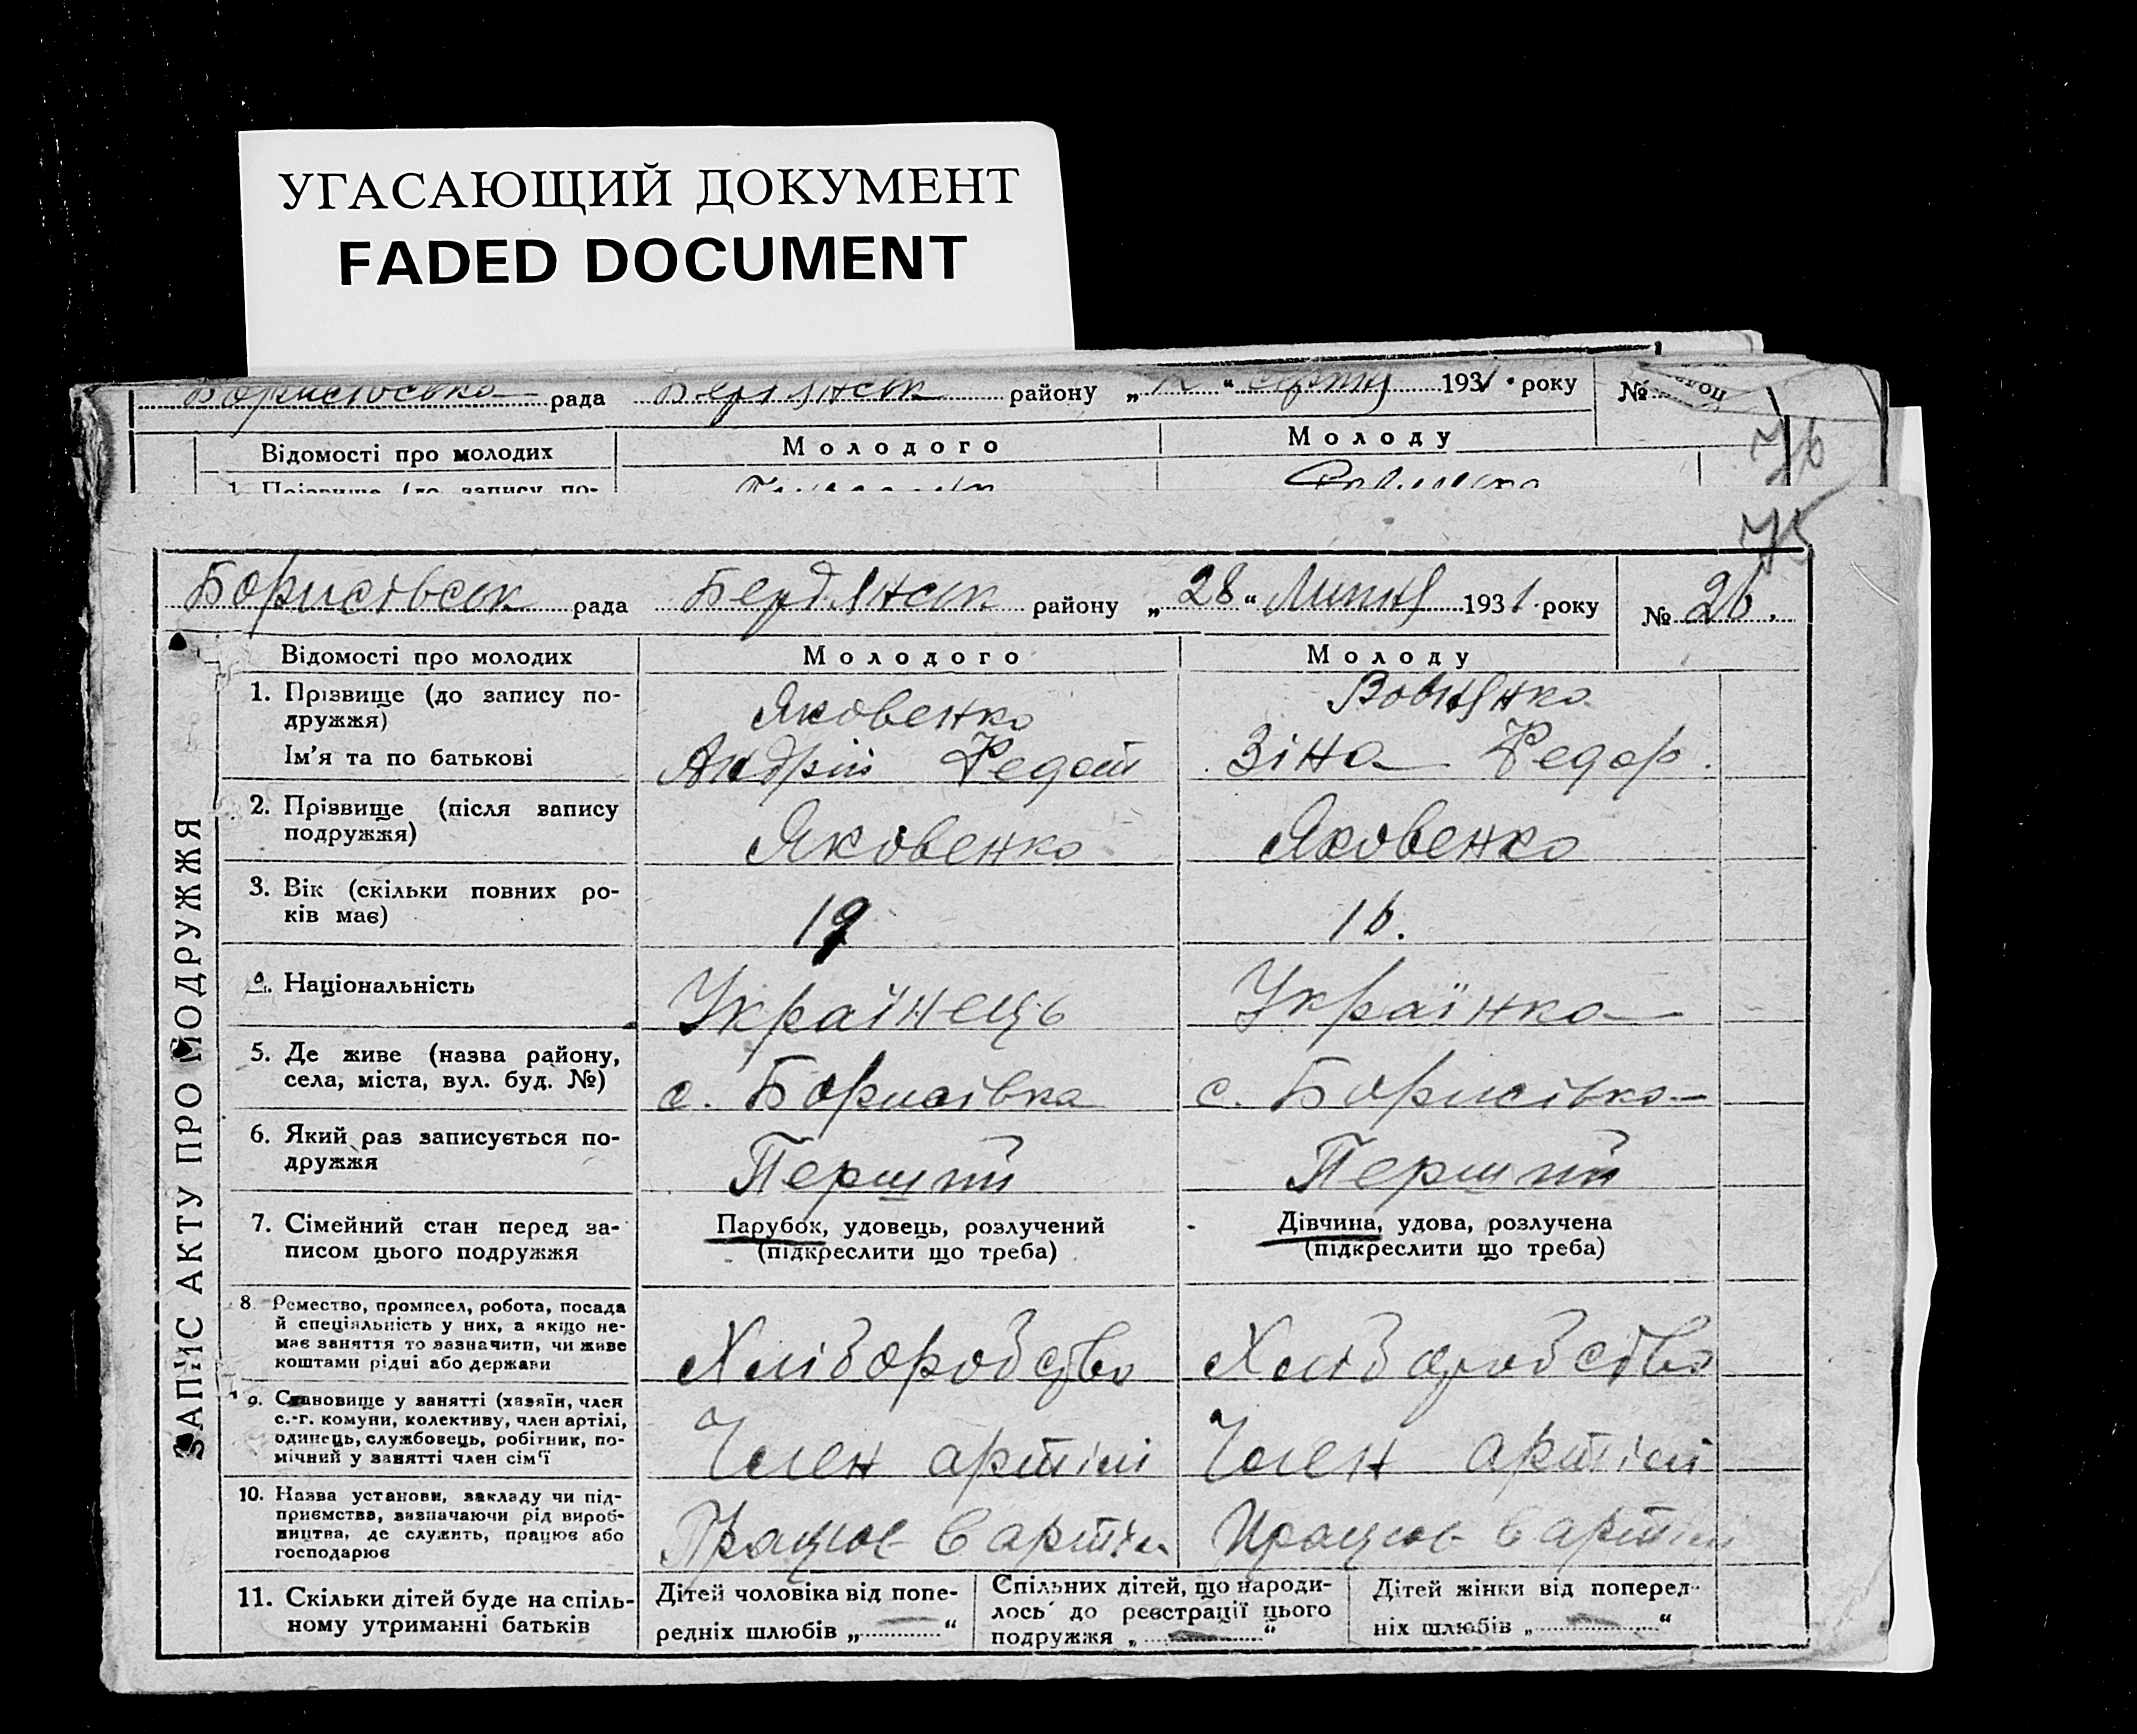 УГАСАЮЩИЙ ДОКУМЕНТ
FADED DOCUMENT
рада Бердянськ району „ “ 1931 року №
Відомості про молодих Молодого Молоду
76
75
Борисівськ рада Бердянськ району „28“ Липня 1931 року № 26.
Відомості про молодих Молодого Молоду
1. Прізвище (до запису по-
дружжя) Яковенко
Ім'я та по батькові Андрій Федот Зіна Федор.
2. Прізвище (після запису
подружжя) Яковенко Яковенко
3. Вік (скільки повних ро-
ків має) 19 16.
Національність Українець Українка
5. Де живе (назва району,
села, міста, вул. буд. №) с. Борисівка с. Борисівка
6. Який раз записується по-
дружжя Перший Перший
7. Сімейний стан перед за-
писом цього подружжя
Парубок, удовець, розлучений
(підкреслити що треба)
Дівчина, удова, розлучена
(підкреслити що треба)
8. Ремество, промисел, робота, посада
й спеціяльність у них, а якщо не-
має заняття то зазначити, чи живе
коштами рідні або держави
Хліборобство Хліборобство
9. Становище у занятті (хазяїн, член
с.-г. комуни, колективу, член артілі,
одинець, службовець, робітник, по-
мічний у занятті член сім'ї
Член артілі Член артілі
10. Назва установи, закладу чи під-
приємства, зазначаючи рід вироб-
ництва, де служить, працює або
господарює
Працює в артіл Працює в артілі
11. Скільки дітей буде на спіль-
ному утриманні батьків
Дітей чоловіка від попе-
редніх шлюбів „ “
Спільних дітей, що народи-
лось до реєстрації цього
подружжя „ “
Дітей жінки від поперед-
ніх шлюбів „ “
ЗАПИС АКТУ ПРО ПОДРУЖЖЯ